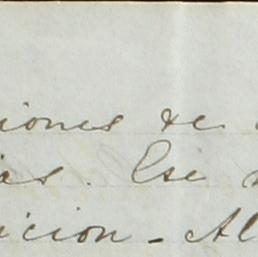 iones de
ias. Ese
icion - Al